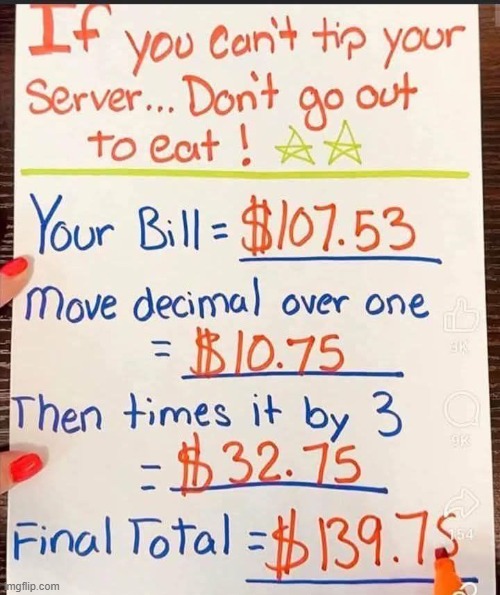 If you can't tip your
Server... Don't go out
to eat!
Your Bill = $107.53
Move decimal over one
= $10.75
Then times it by 3
= $32.75
Final Total = $139.75
9K
9K
154
imgflip.com